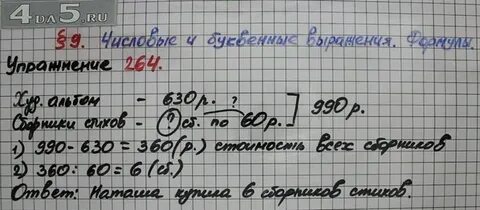 4DA5.RU
§9. Числовые и буквенные выражения. Формулы.
Упражнение 264.
Худ. альбом - 630 р. ?
Сборники стихов - ? сб. по 60 р. ] 990 р.
1) 990-630 = 360 (р.) стоимость всех сборников
2) 360 : 60 = 6 (сб.)
Ответ: Наташа купила 6 сборников стихов.